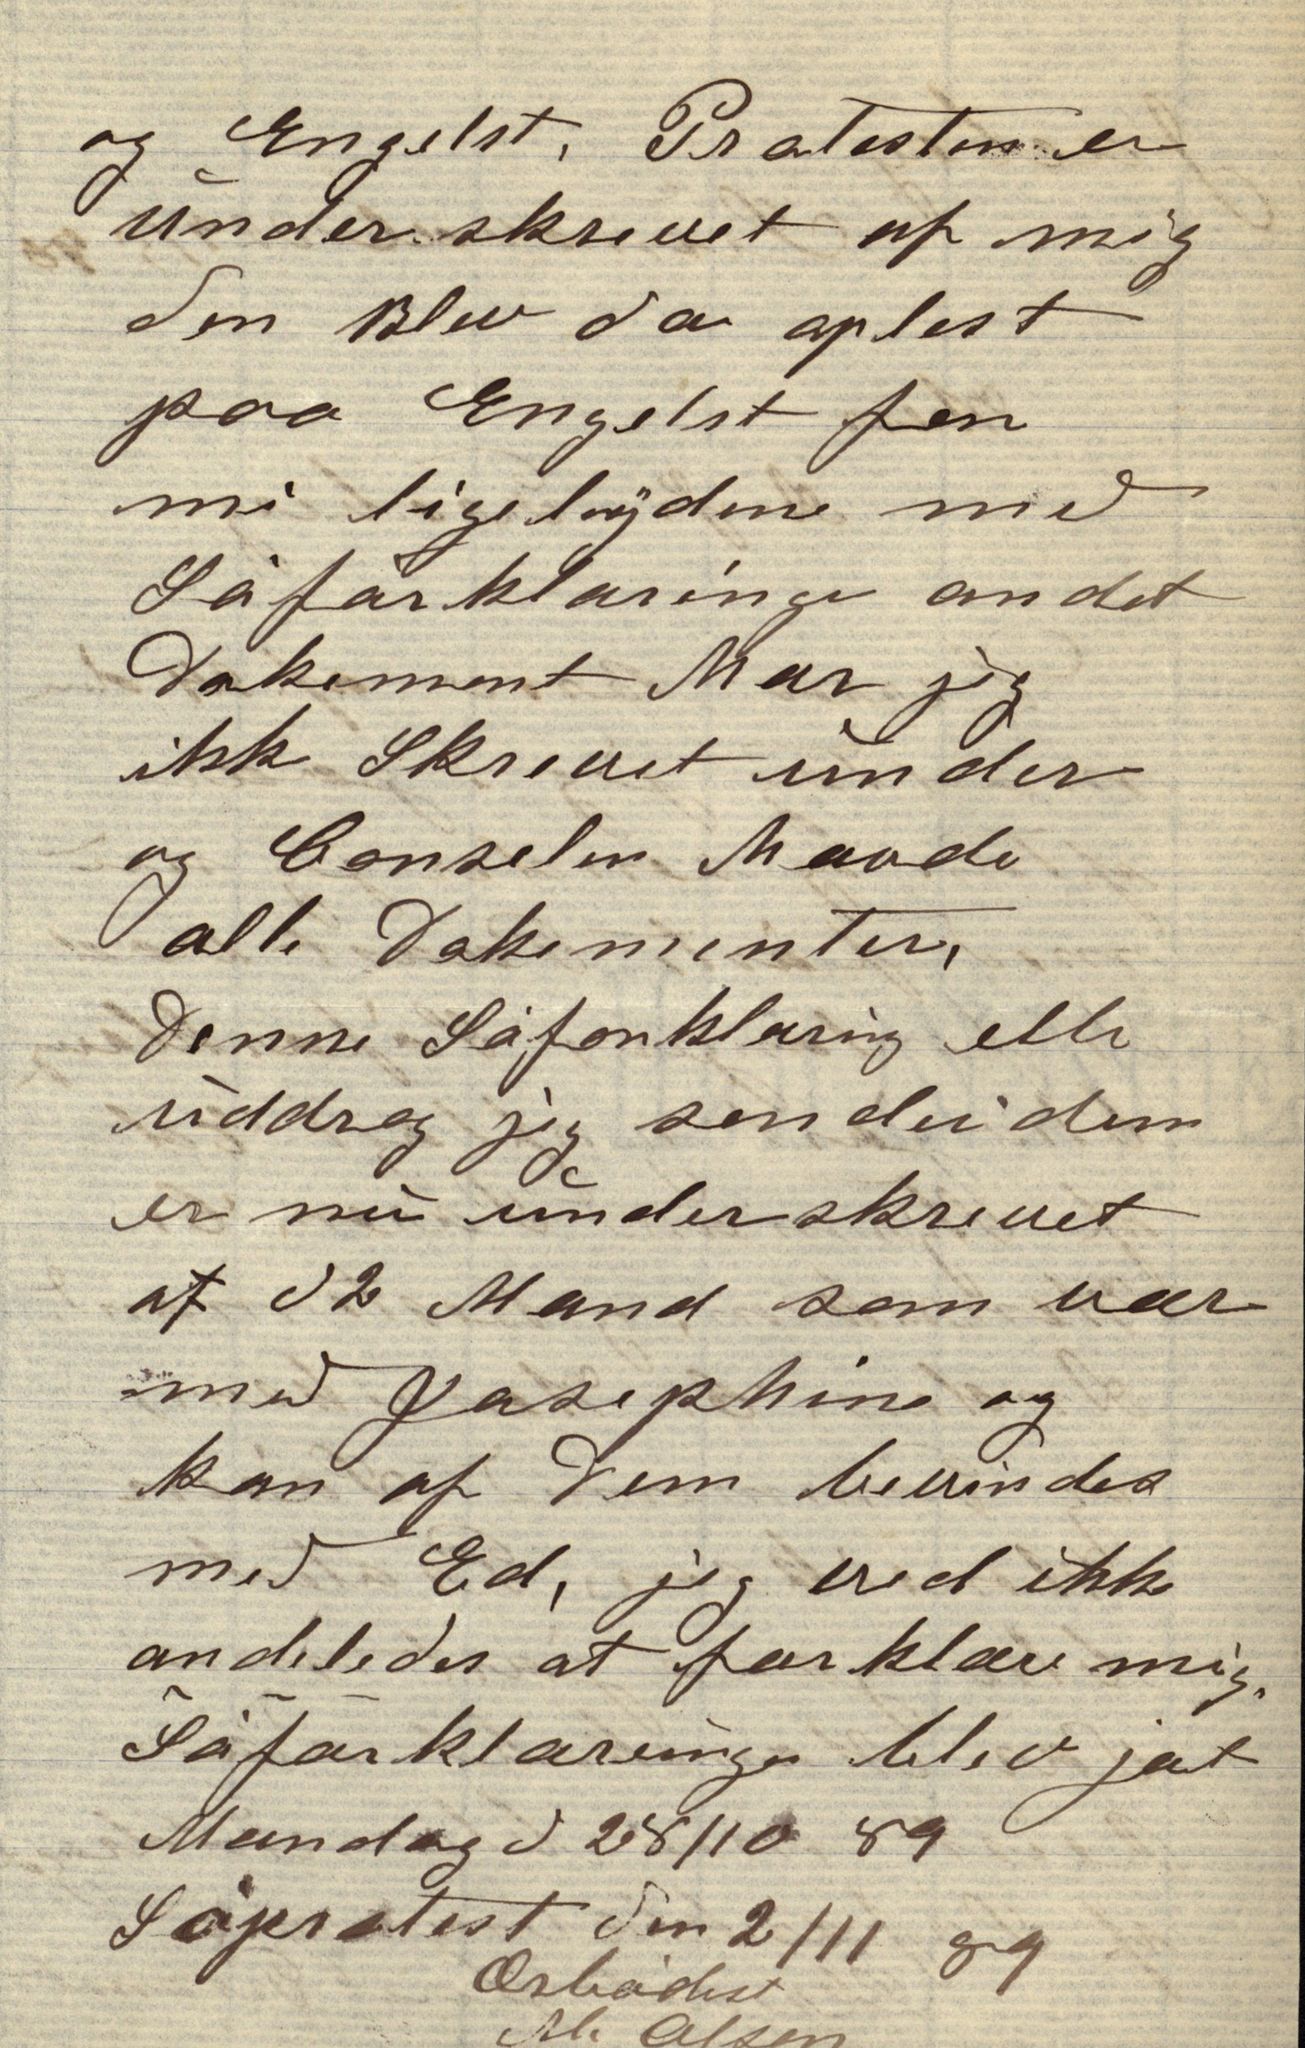 og Engelst, Protesten er
ünder skrevet af mig
den Blev da oplest
paa Engelst for
mi ligelÿdene med
Söförklaringe andet
Dokement Har jeg
ikk Skrevet ünder
og Conselen Havde
alle Dokementer,
Denne Söforklaring elle
üddrag jeg sender dem
er nü ünderskrevet
af d 2 Mand som var
med Josephine og
kan af Dem bevindes
med Ed, jeg ved ikke
andeledes at forklare mig.
Söförklaringe blev jort
Mandag d 28/10 89
Söprotest den 2/11 89
Ærbödist
M. Olsen